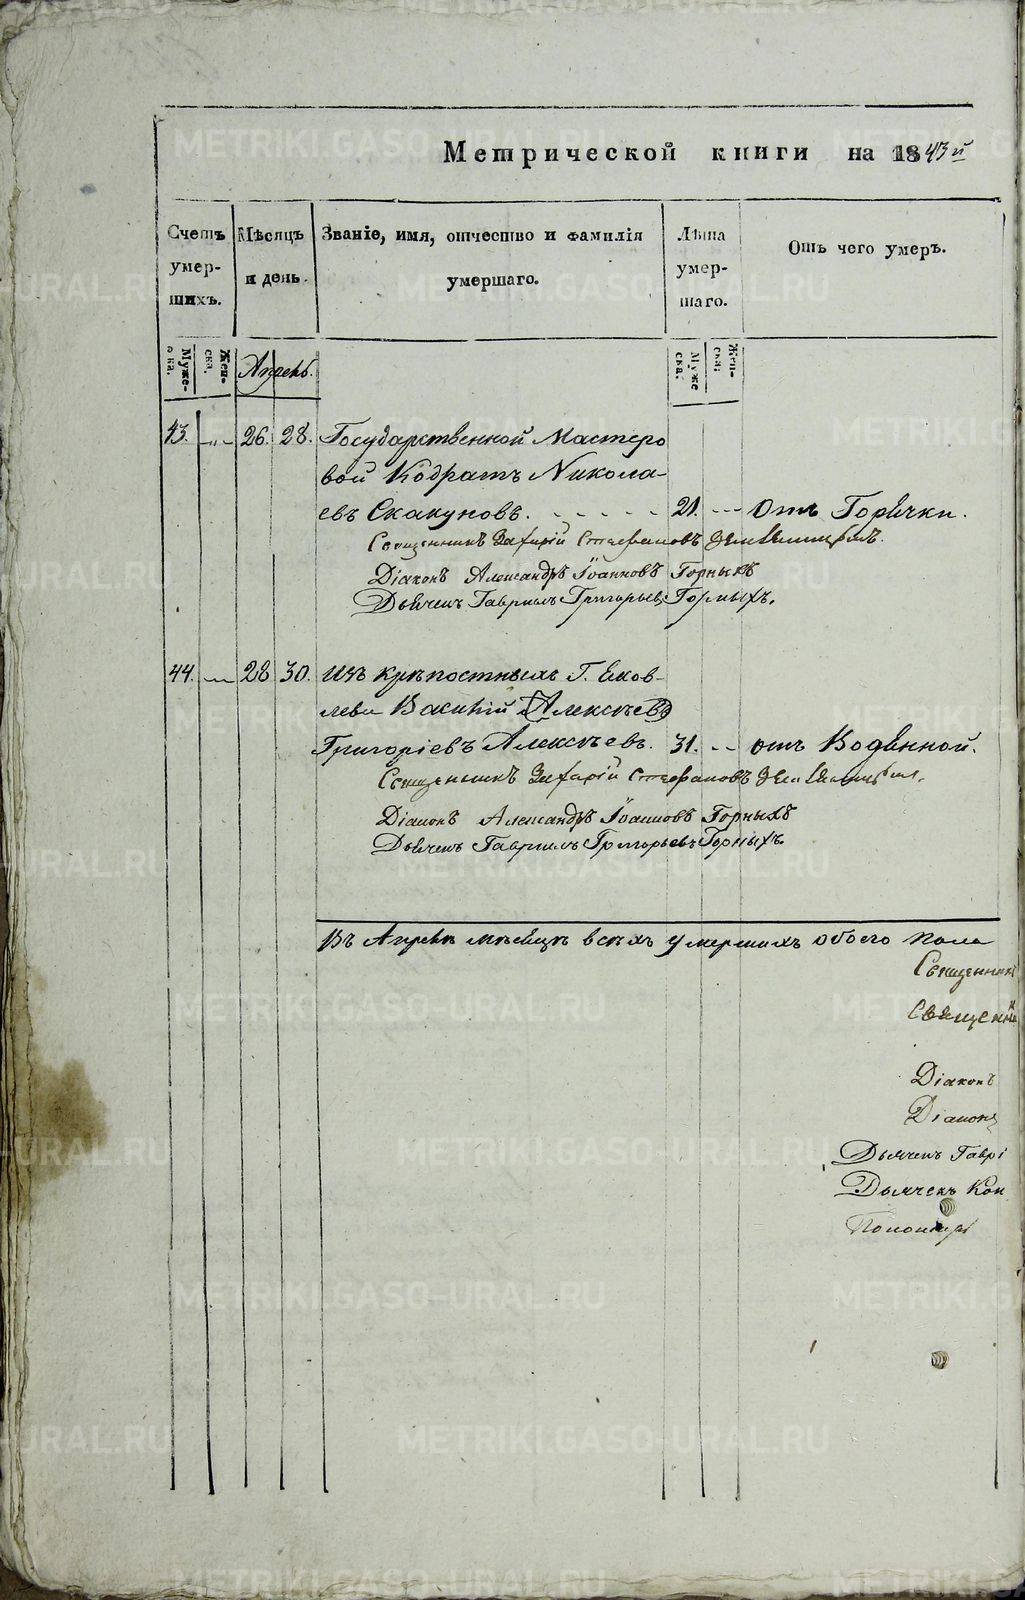 Метрической книги на 1843й
Счетъ умер-шихъ.
Мѣсяцъ и день.
Званіе, имя, отчество и фамилія умершаго.
Лѣта умер-шаго.
Отъ чего умеръ.
Муже-ска.
Жен-ска.
Апрель.
Муже ска.
Жен-ска.
43. 26. 28. Государственной Мастеро
вой Кодратъ Никола-
евъ Скакуновъ. 21. Отъ Горячки.
Священникъ Захарій Стефановъ
Діаконъ Александръ Іоанновъ Горныхъ
Дьячекъ Гавріилъ Григорьевъ Горныхъ.
44. 28 30. Изъ крѣпостныхъ Г. Яков-
лева Василій Алексѣевъ
Григоріевъ Алексѣевъ. 31. отъ Водяной.
Священникъ Захарій Стефановъ
Діаконъ Александръ Іоанновъ Горныхъ
Дьячекъ Гавріилъ Григорьевъ Горныхъ
Въ Апрелѣ мѣсяцѣ всѣхъ умершихъ обоего пола
Священникъ
Священни
Діаконъ
Діаконъ
Дьячекъ Гаврі
Дьячекъ Кон
Пономарь
METRIKI.GASO-URAL.RU